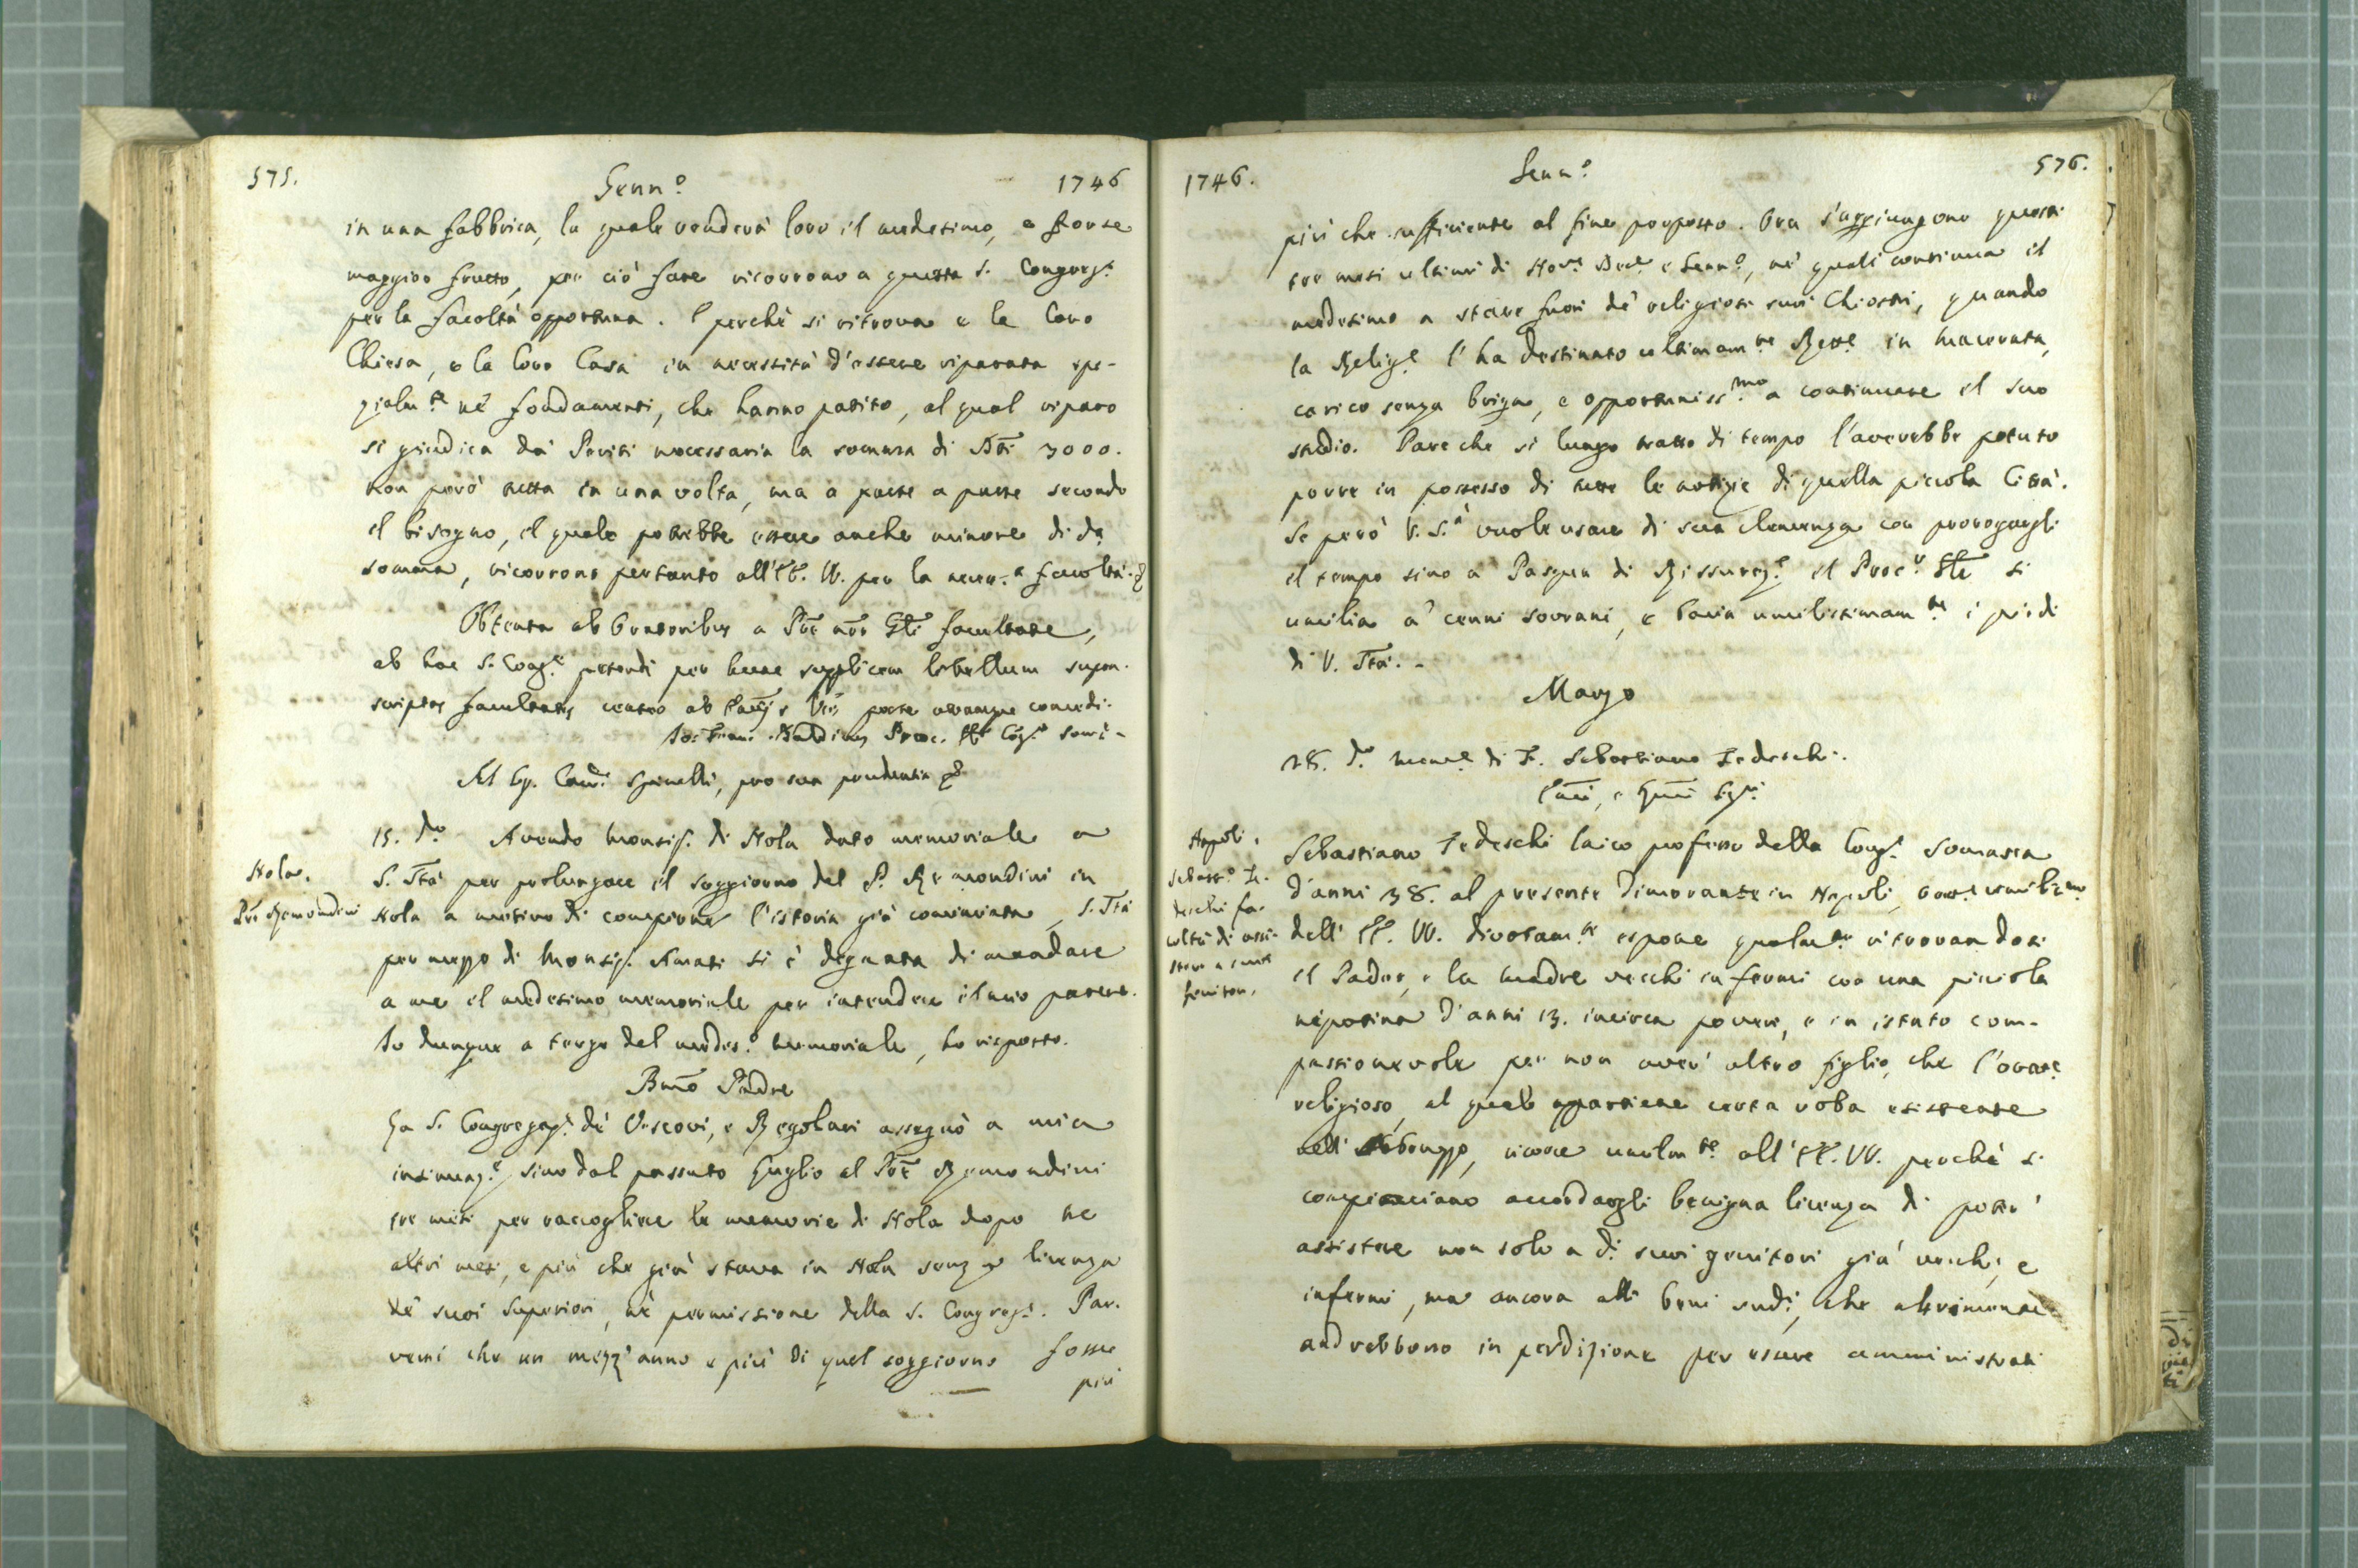 575. Genn.º 1746
in una fabbrica, la quale renderà loro il medesimo, e forse
maggior frutto, per ciò fare ricorrono a questa S. Congreg.ne
per la facoltà opportuna. E perchè si ritrova e la loro
Chiesa, e la loro Casa in necessità d'essere riparata spe-
zialm.te ne' fondamenti, che hanno patito, al qual riparo
si giudica da' Periti necessaria la somma di Dti 3000.
non però tutta in una volta, ma a parte a parte secondo
il bisogno, il quale potrebbe essere anche minore di d.a
somma, ricorrono pertanto all'EE. VV. per la necess.a facoltà.
Obtenta ab Oratoribus a Pre nro Gli facultate,
ab hac S. Cong.e petendi per hunc supplicem libellum supra-
scriptas facultates censeo ab Emijs Vris posse utramque concedi.
Jo: Fran. Baldinus Proc. Glis Cog.is Som.
All Ep. Card. Spinelli, pro sua prudentia
15. d.o Avendo Monsig. di Nola dato memoriale a
S. Stà per prolungare il soggiorno del P. Remondini in
Nola a motivo di compiere l'istoria già cominciata, S. Stà
per mezzo di Monsig. Amati si è degnata di mandare
a me il medesimo memoriale per intendere il mio parere.
Io dunque a tergo del medes.º memoriale, ho risposto.
Nola.
Pre Remondini
Bmo Padre
La S. Congregaz.e de' Vescovi, e Regolari assegnò a mia
insinuaz.e sino dal passato Luglio al Pre Remondini
tre mesi per raccogliere le memorie di Nola dopo tre
altri mesi, e più che già stava in Nola senza licenza
de' suoi Superiori, nè permissione della S. Congreg.e. Par-
vemi che un mezz'anno e più di quel soggiorno fosse
più
1746. Genn.º 576.
più che sufficiente al fine proposto. Ora s'aggiungono questi
tre mesi ultimi di Nov.e Dec.e e Genn.º, ne' quali continua il
medesimo a stare fuori de' religiosi suoi Chiostri, quando
la Relig.e l'ha destinato ultimam.te Rett.e in Macerata,
carico senza briga, e opportuniss.mo a continuare il suo
studio. Pare che sì lungo tratto di tempo l'averebbe potuto
porre in possesso di tutte le notizie di quella piccola Città.
Se però V. S.à vuole usare di sua clemenza con prorogargli
il tempo sino a Pasqua di Rissurez.e il Proc.e Gle si
umilia a' cenni sovrani, e bacia umilissimam.te i piedi
di V. Stà. -
Marzo
28. d.o Mem.e di F. Sebastiano Tedeschi.
Emi, e Rmi Sig.ri
Napoli.
Sebast.º Te-
deschi fa-
coltà di assi-
stere a suoi
genitori.
Sebastiano Tedeschi laico professo della Cong.e Somasca
d'anni 38. al presente dimorante in Napoli, Orat.e umiliss.mo
dell'EE. VV. divotam.te espone qualm.te ritrovandosi
il Padre, e la Madre vecchi infermi con una piciola
nepotina d'anni 13. incirca povera, e in istato com-
passionevole per non aver altro figlio, che l'orat.e
religioso, al quale appartiene certa roba esistente
nell'Abbruzzo, ricorre umilm.te all'EE. VV. perchè si
compiacciano accordargli benigna licenza di poter
assistere non solo a d.i suoi genitori già vecchi, e
infermi, ma ancora alli beni sud.i, che altrimenti
andrebbono in perdizione per essere amministrati